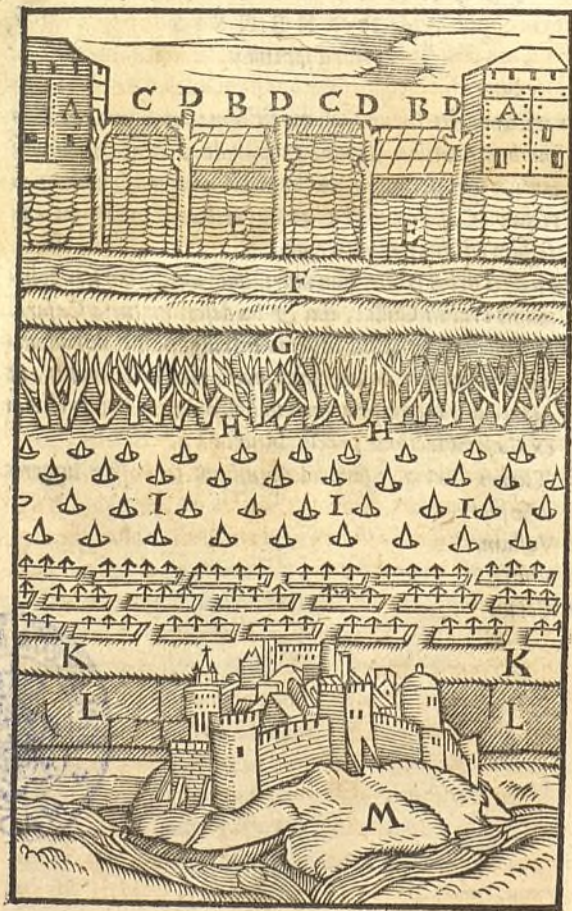 C D B D C D B D
A A
E E
F
G
H H
I I I
K K
L L
M